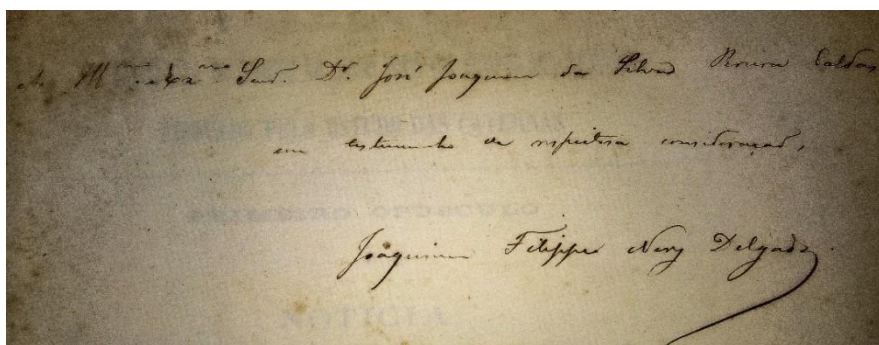 Ao Ill.mo e Ex.mo Snr. Dr. José Joaquim da Silva Pereira Caldas
em testemunho de respeitosa consideração,
PRIMEIRO OPUSCULO
Joaquim Filippe Nery Delgado.
NOTICIA